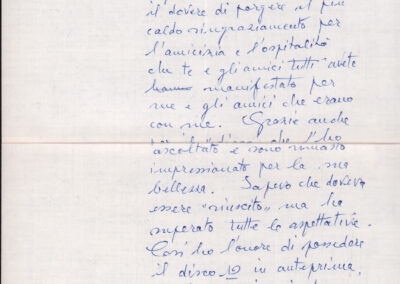 il dovere di porgere il più
caldo ringraziamento per
l'amicizia e l'ospitalità
che te e gli amici tutti avete
hanno manifestato per
me e gli amici che erano
con me. Grazie anche
che l'ho
ascoltato e sono rimasto
impressionato per la sua
bellezza. Sapevo che doveva
essere "riuscito" ma ha
superato tutte le aspettative.
Così ho l'onore di possedere
il disco 12 in anteprima.